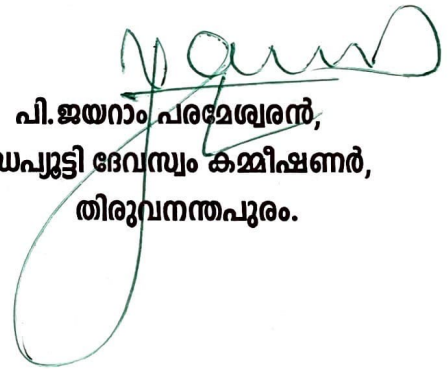 പി.ജയറാം പരമേശ്വരൻ,
ഡെപ്യൂട്ടി ദേവസ്വം കമ്മീഷണർ,
തിരുവനന്തപുരം.